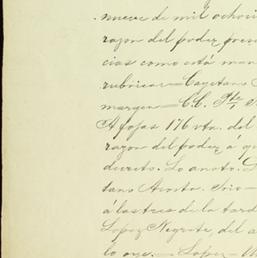 nueve de mil ochoci
razon del poder pres
cias como está man
rubricas — Cayetano
margen — C.C. Pte
A fojas 176 vta. del
razon del poder á q
decreto. Lo anoto.
tano Acosta. Srio —
á las tres de la tard
Lopez Negrete, del a
lo oye. — Lopez —